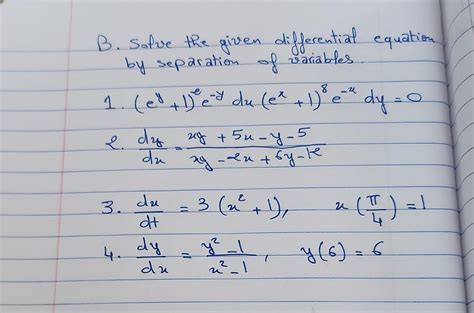 B. Solve the given differential equation
by separation of variables.
1. (e^y + 1)^2 e^-y dx (e^x + 1)^8 e^-x dy = 0
2. dy/dx = xy + 5x - y - 5 / xy - 2x + 6y - 12
3. dx/dt = 3 (x^2 + 1), x (π/4) = 1
4. dy/dx = y^2 - 1 / x^2 - 1, y(6) = 6